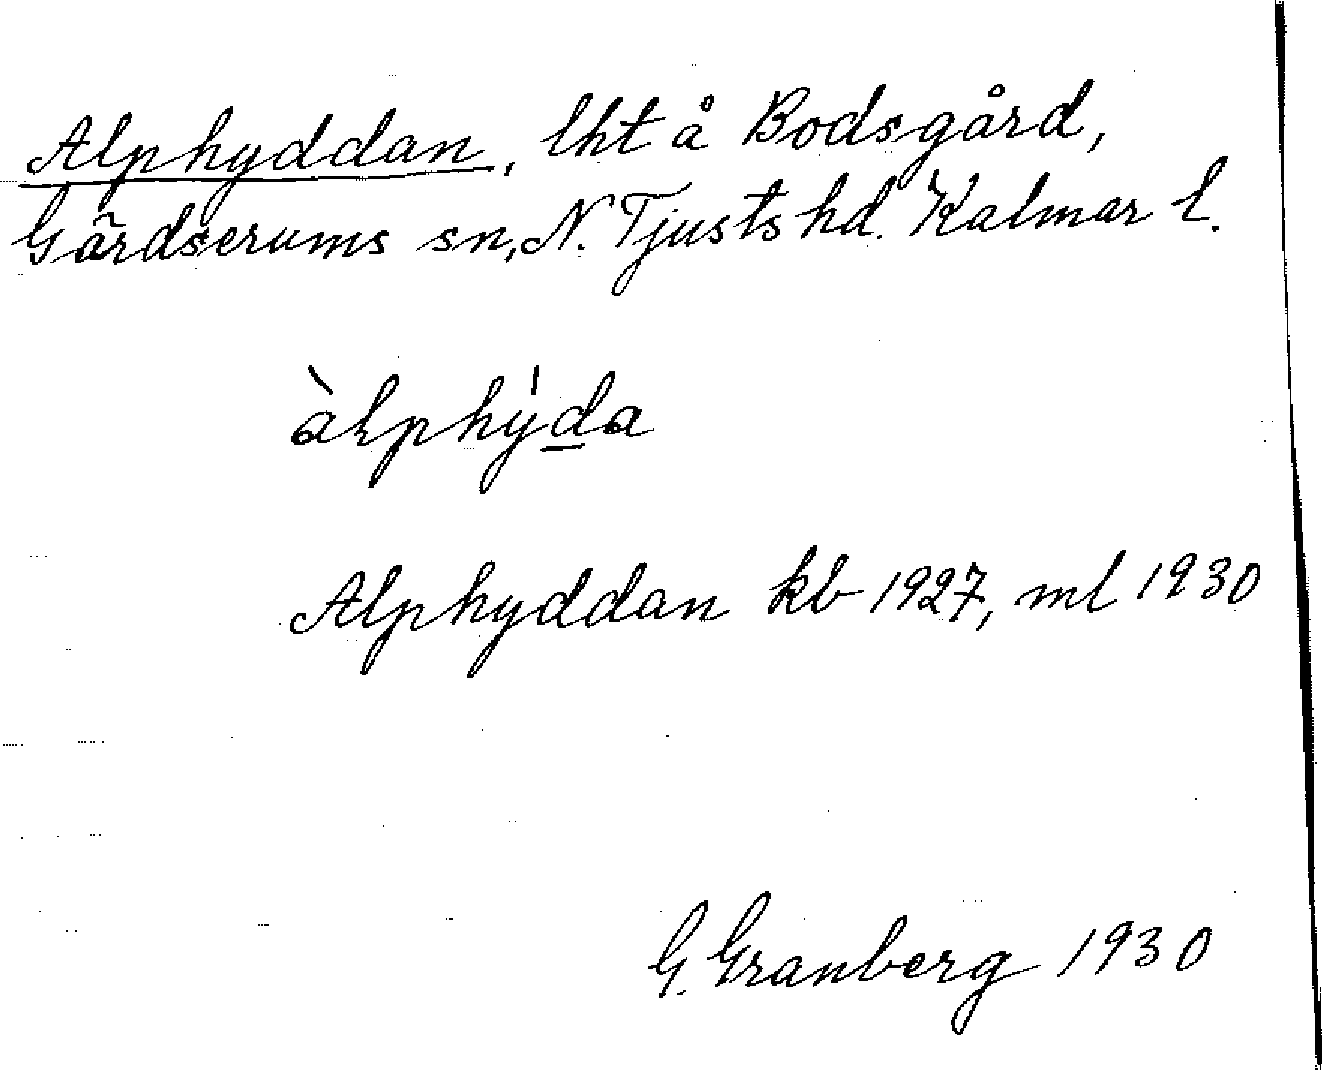 Alphyddan, lht å Bodsgård,
Gärdserums sn, N. Tjusts hd. Kalmar l.
àlphýda
Alphyddan kb 1927, ml 1930
G. Granberg 1930